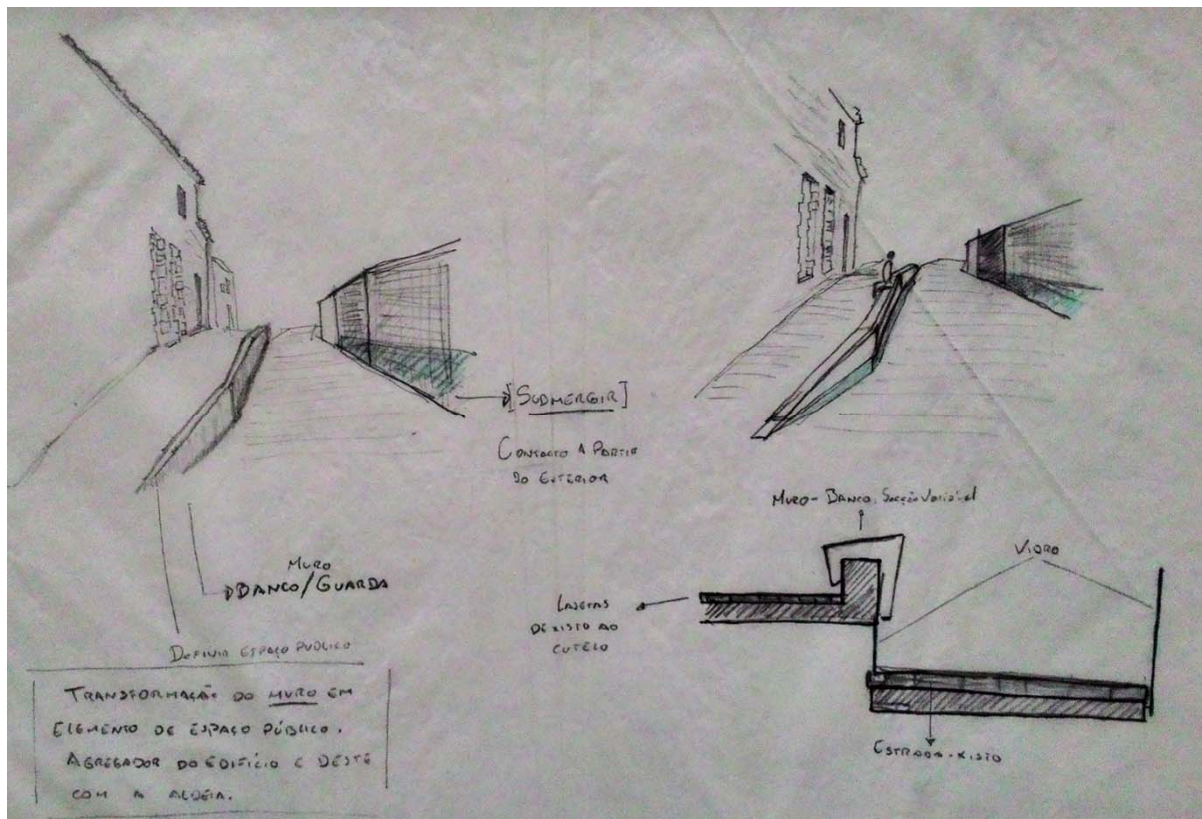 [SUBMERGIR]
CONTACTO A PARTIR
DO EXTERIOR
MURO
BANCO/GUARDA
DEFINIR ESPAÇO PUBLICO
TRANSFORMAÇÃO DO MURO EM
ELEMENTO DE ESPAÇO PÚBLICO.
AGREGADOR DO EDIFÍCIO E DESTE
COM A ALDEIA.
MURO-BANCO. Secção Variável
VIDRO
LAJETAS
DE XISTO AO
CUTELO
ESTRADA-XISTO